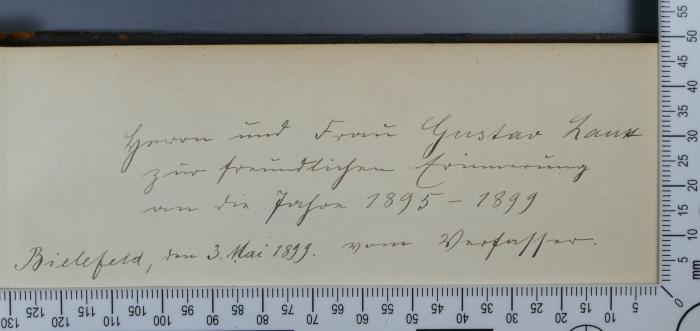 Herrn und Frau Gustav Laux
zur freundlichen Erinnerung
an die Jahre 1895 - 1899
vom Verfasser.
Bielefeld, den 3. Mai 1899.
55
50
45
40
35
30
25
20
15
10
5
mm
0
130 125 120 115 110 105 100 95 90 85 80 75 70 65 60 55 50 45 40 35 30 25 20 15 10 5